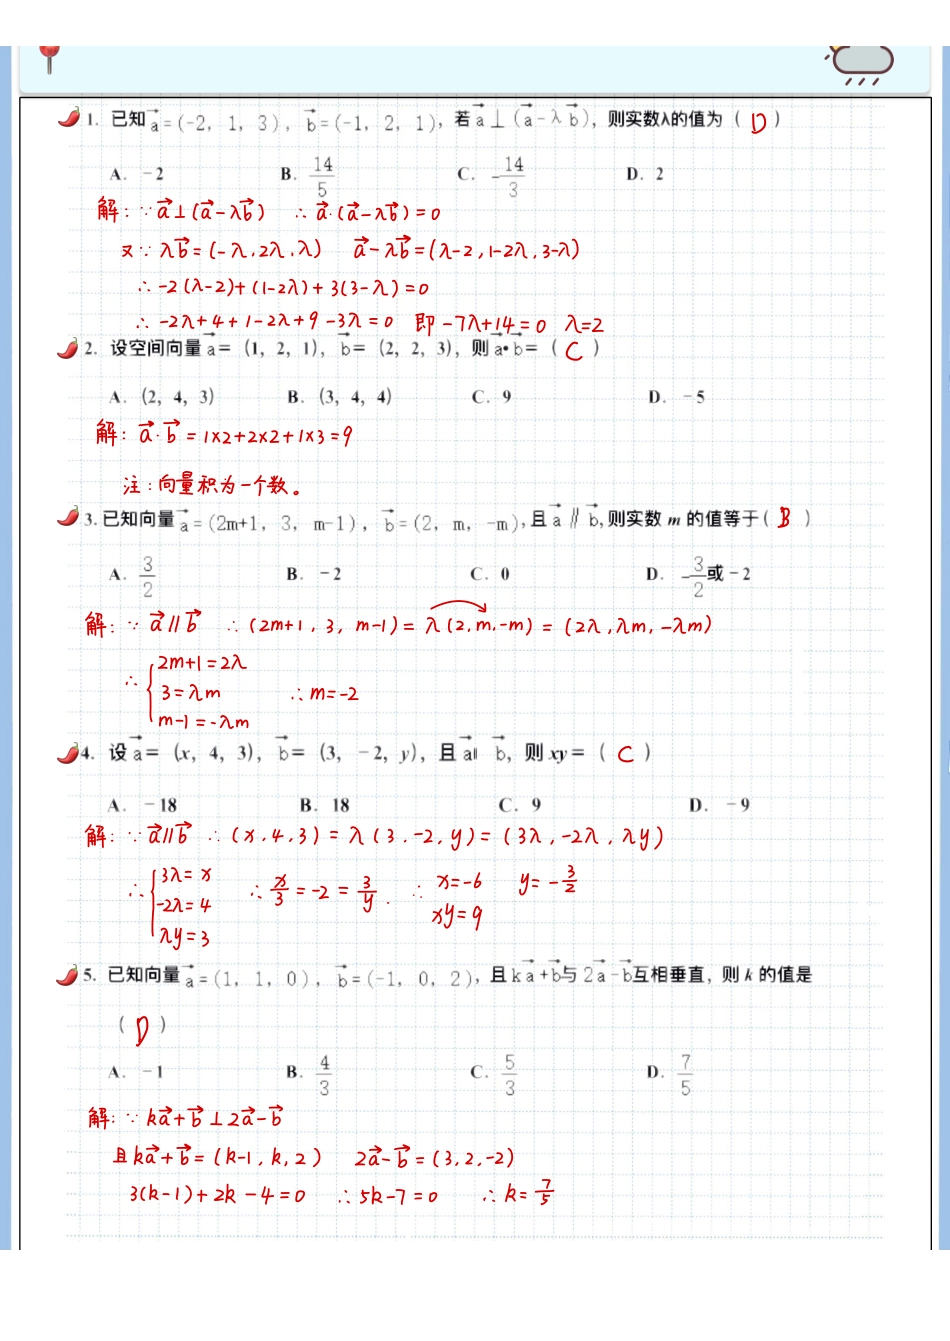 1. 已知a⃗=(-2, 1, 3), b⃗=(-1, 2, 1), 若a⃗⊥(a⃗-λb⃗), 则实数λ的值为 ( D )
A. -2 B. 14/5 C. -14/3 D. 2
解: ∵ a⃗⊥(a⃗-λb⃗) ∴ a⃗·(a⃗-λb⃗)=0
又∵ λb⃗=(-λ,2λ,λ) a⃗-λb⃗=(λ-2,1-2λ,3-λ)
∴ -2(λ-2)+(1-2λ)+3(3-λ)=0
∴ -2λ+4+1-2λ+9-3λ=0 即-7λ+14=0 λ=2
2. 设空间向量a⃗= (1, 2, 1), b⃗= (2, 2, 3), 则a⃗•b⃗= ( C )
A. (2, 4, 3) B. (3, 4, 4) C. 9 D. -5
解: a⃗·b⃗=1×2+2×2+1×3=9
注:向量积为一个数。
3. 已知向量a⃗=(2m+1, 3, m-1), b⃗=(2, m, -m), 且a⃗∥b⃗, 则实数 m 的值等于( B )
A. 3/2 B. -2 C. 0 D. -3/2或-2
解: ∵ a⃗//b⃗ ∴ (2m+1, 3, m-1)=λ(2,m,-m)=(2λ,λm,-λm)
2m+1=2λ
∴ { 3=λm ∴m=-2
m-1=-λm
4. 设a⃗= (x, 4, 3), b⃗= (3, -2, y), 且a⃗∥b⃗, 则 xy= ( C )
A. -18 B. 18 C. 9 D. -9
解: ∵ a⃗//b⃗ ∴ (x,4,3)=λ(3,-2,y)=(3λ,-2λ,λy)
3λ=x
∴ { -2λ=4 ∴ x/3=-2=3/y. ∴ x=-6 y=-3/2
λy=3 xy=9
5. 已知向量a⃗=(1, 1, 0), b⃗=(-1, 0, 2), 且ka⃗+b⃗与2a⃗-b⃗互相垂直, 则 k 的值是
( D )
A. -1 B. 4/3 C. 5/3 D. 7/5
解: ∵ ka⃗+b⃗⊥2a⃗-b⃗
且ka⃗+b⃗=(k-1,k,2) 2a⃗-b⃗=(3,2,-2)
3(k-1)+2k-4=0 ∴5k-7=0 ∴k=7/5